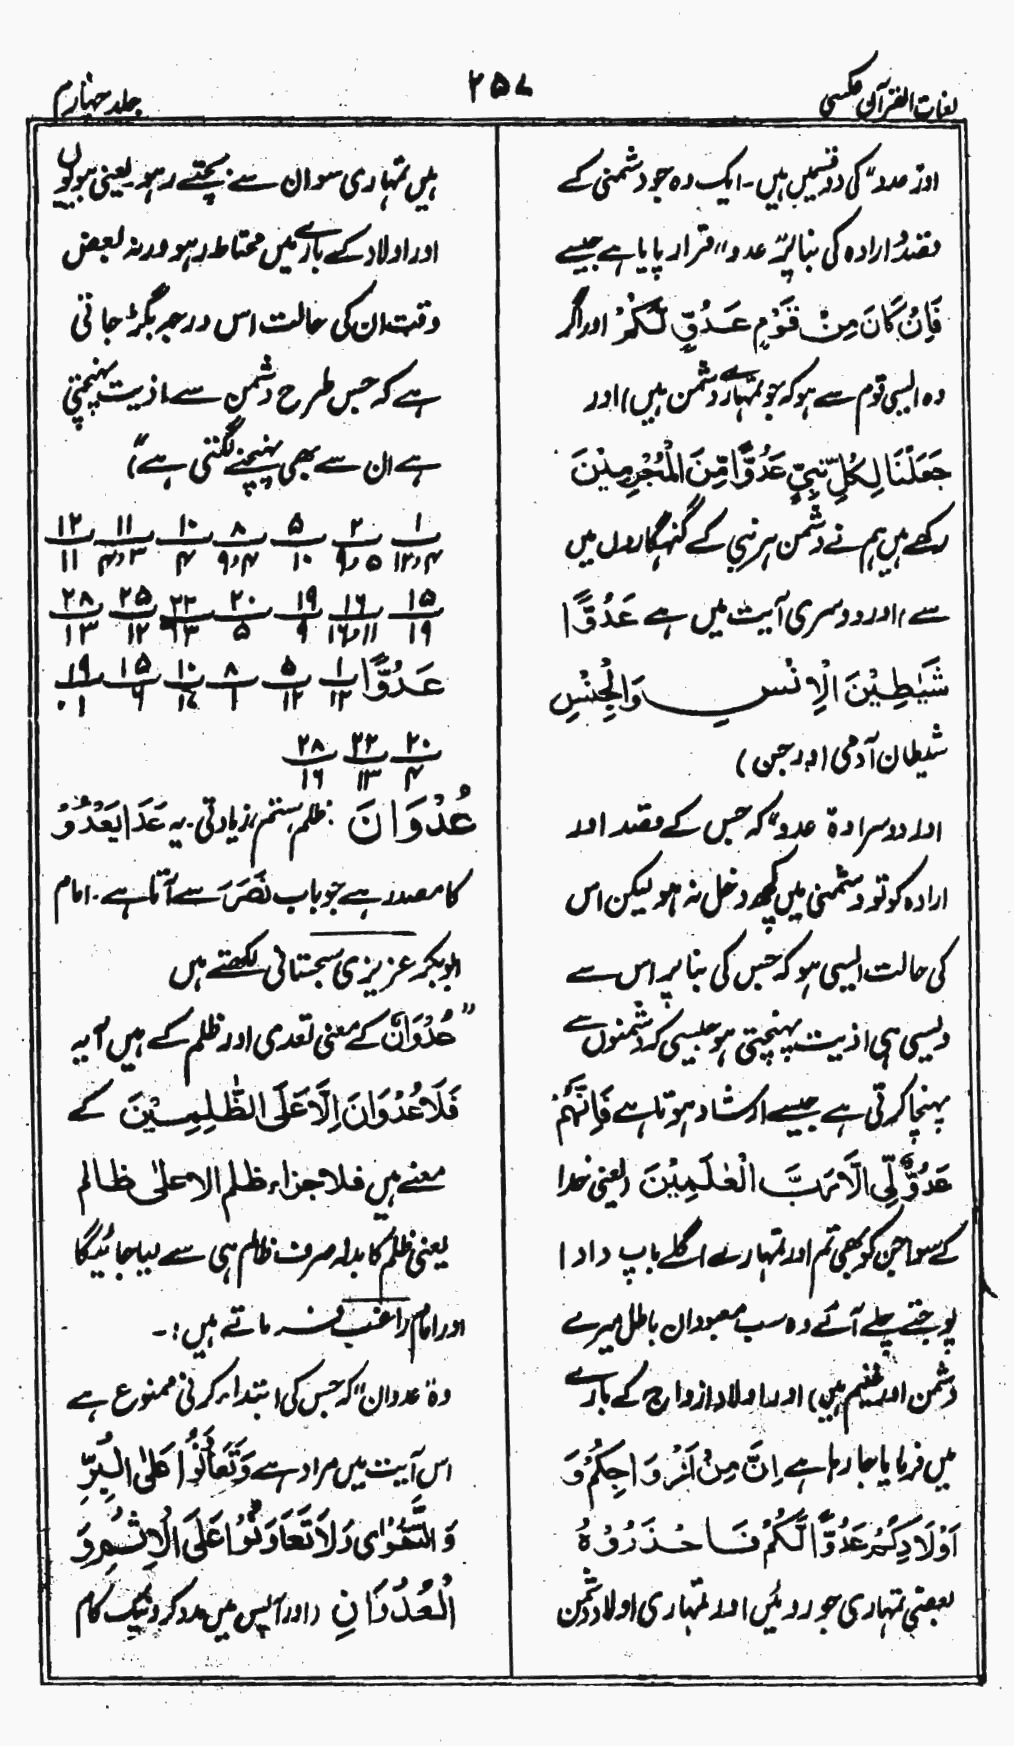 لغات القرآن عکسی
۲۵۷
جلد چہارم
اور عدو" کی دو قسمیں ہیں۔ ایک وہ جو دشمنی کے
قصد و ارادہ کی بنا پر "عدو" قرار پایا ہے جیسے
فَاِنْ كَانَ مِنْ قَوْمٍ عَدُوٍّ لَّكُمْ اور اگر
وہ ایسی قوم سے ہو کہ جو تمہارے دشمن ہیں) اور
جَعَلْنَا لِكُلِّ نَبِيٍّ عَدُوًّا مِّنَ الْمُجْرِمِيْنَ
رکھے ہیں ہم نے دشمن ہر نبی کے گنہگاروں میں
سے) اور دوسری آیت میں ہے عَدُوًّا
شَيٰطِيْنَ الْاِنْسِ وَالْجِنِّ
شیطان آدمی اور جن)
اور دوسرا وہ عدو" کہ جس کے قصد اور
ارادہ کو تو دشمنی میں کچھ دخل نہ ہو لیکن اس
کی حالت ایسی ہو کہ جس کی بنا پر اس سے
ویسی ہی اذیت پہنچتی ہو جیسی کہ دشمنوں سے
پہنچا کرتی ہے جیسے ارشاد ہوتا ہے فَاِنَّهُمْ
عَدُوٌّ لِّيْ اِلَّا رَبَّ الْعٰلَمِيْنَ (یعنی خدا
کے سوا جن کو بھی تم اور تمہارے اگلے باپ دادا
پوجتے چلے آئے وہ سب معبودان باطل میرے
دشمن اور غنیم ہیں) اور اولاد ازواج کے بارے
میں فرمایا جا رہا ہے اِنَّ مِنْ اَزْوَاجِكُمْ وَ
اَوْلَادِكُمْ عَدُوًّا لَّكُمْ فَاحْذَرُوْهُ
بعضی تمہاری جوروئیں اور تمہاری اولاد دشمن
ہیں تمہاری سو ان سے بچتے رہو۔ یعنی بیویوں
اور اولاد کے بارے میں محتاط رہو ورنہ بعض
وقت ان کی حالت اس درجہ بگڑ جاتی
ہے کہ جس طرح دشمن سے اذیت پہنچتی
ہے ان سے بھی پہنچنے لگتی ہے)"
۱/۴و۱۲ ۲/۵و۹ ۵/۱۰ ۸/۴و۹ ۱۰/۴ ۱۱/۳و۴ ۱۲/۱۱
۱۵/۱۹ ۱۶/۱۱و۱۶ ۱۹/۹ ۲۰/۵ ۲۲/۱۳و۹ ۲۵/۱۲ ۲۸/۱۳
عَدُوًّا ۱/۱۲ ۵/۱۲ ۸/۱ ۱۰/۱۴ ۱۵/۶ ۱۹/۱۰
۲۰/۴ ۲۲/۱۳ ۲۸/۱۶
عُدْوَانَ : ظلم، ستم، زیادتی۔ یہ عَدَا يَعْدُوْ
کا مصدر ہے جو باب نَصَرَ سے آتا ہے۔ امام
ابوبکر عزیزی سجستانی لکھتے ہیں
"عُدْوَانَ کے معنی تعدی اور ظلم کے ہیں آیہ
فَلَا عُدْوَانَ اِلَّا عَلَى الظّٰلِمِيْنَ کے
معنے ہیں فلا جزاء ظلم الا علیٰ ظالم
یعنی ظلم کا بدلہ صرف ظالم ہی سے لیا جائیگا
اور امام راغب فرماتے ہیں:۔
وہ "عدوان" کہ جس کی ابتداء کرنی ممنوع ہے
اس آیت میں مراد ہے وَتَعَاوَنُوْا عَلَى الْبِرِّ
وَ التَّقْوٰى وَلَا تَعَاوَنُوْا عَلَى الْاِثْمِ وَ
الْعُدْوَانِ (اور آپس میں مدد کرو نیک کام